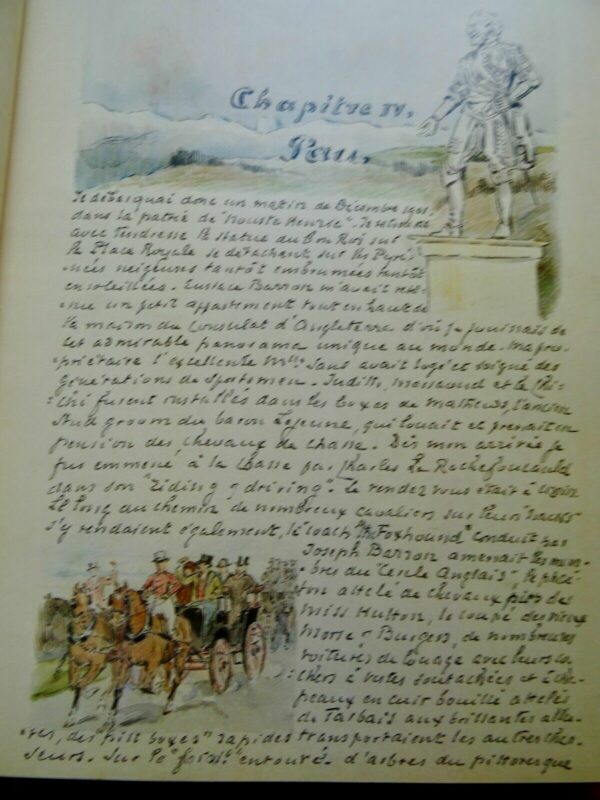 Chapitre IV.
Pau.
Je debarquai donc un matin de Décembre
dans la patrie de "Nouste Henric". Je
avec tendresse la statue du Bon Roi sur
la Place Royale se détachant sur les Pyré-
-nées neigeuses tantôt embrumées tantôt
ensoleillées. Eustace Barron m'avait rete-
-nue un petit appartement tout en haut de
la maison du Consulat d'Angleterre d'où je jouissais de
cet admirable panorama unique au monde. Ma pro-
-priétaire l'excellente Mlle Sans avait logé et soigné des
générations de Sportsmen. Judith, Messaoud et le Chi-
-chi furent installés dans les boxes de Mathews, l'ancien
Stud groom du baron Lejeune, qui louait et prenait en
pension des chevaux de chasse. Dès mon arrivée je
fus emmené à la chasse par Charles La Rochefoucauld
dans son "riding & driving". Le rendez vous était à
Le long du chemin de nombreux cavaliers sur leurs hacks
s'y rendaient également, le coach "The Foxhound" conduit par
Joseph Barron amenait les mem-
-bres du "Cercle Anglais", le phaé-
-ton attelé de chevaux pies des
Miss Hutton, le coupé des vieux
Morse & Burgess, de nombreuses
voitures de louage avec leurs co-
-chers à vestes soutachées et à cha-
-peaux en cuir bouilli attelés
de Tarbais aux brillantes allu-
-res, des "pill boxes" rapides transportaient les autres chas-
-seurs. Sur le entouré d'arbres du pittoresque